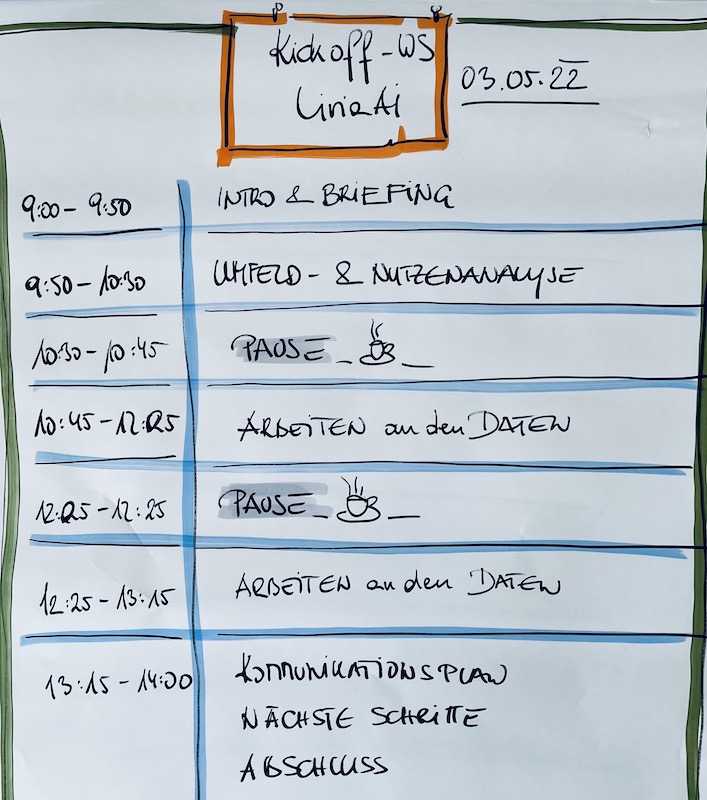 Kickoff-WS
LiviaAi
03.05.22
9:00 - 9:50 INTRO & BRIEFING
9:50 - 10:30 UMFELD- & NUTZENANALYSE
10:30 - 10:45 PAUSE
10:45 - 12:05 ARBEITEN an den DATEN
12:05 - 12:25 PAUSE
12:25 - 13:15 ARBEITEN an den DATEN
13:15 - 14:00 KOMMUNIKATIONSPLAN
NÄCHSTE SCHRITTE
ABSCHLUSS